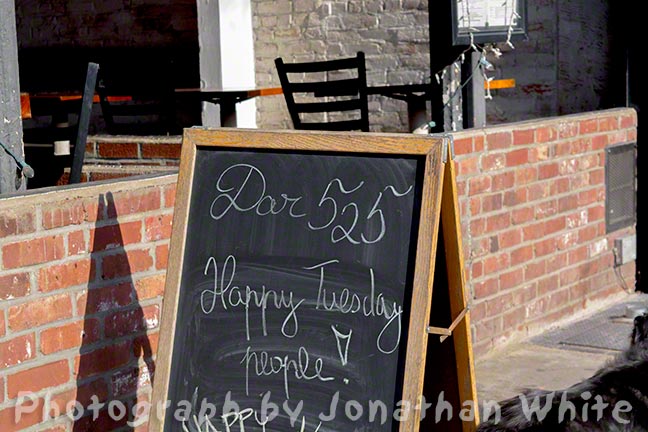 Dar 525
Happy Tuesday
people!
HAPPY
Photograph by Jonathan White